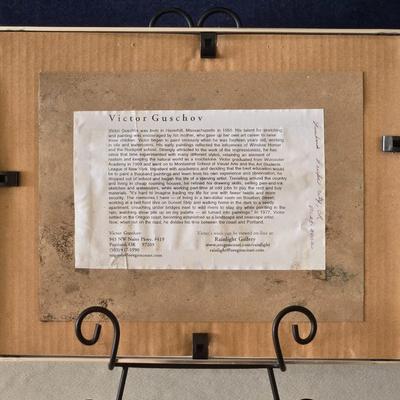 Victor Guschov
Victor Guschov was born in Haverhill, Massachusetts in 1950. His talent for sketching
and painting was encouraged by his mother, who gave up her own art career to raise
three children. Victor began to paint seriously when he was fourteen years old, working
in oils and watercolors. His early paintings reflected the influences of Winslow Homer
and the Rockport school. Strongly attracted to the work of the impressionists, he has
since that time experimented with many different styles, retaining an element of
realism and keeping the natural world as a touchstone. Victor graduated from Worcester
Academy in 1969 and went on to Montserrat School of Visual Arts and the Art Students
League of New York. Impatient with academics and deciding that the best education
he to paint a thousand paintings and learn from his own experience and observation, he
dropped out of school and began the life of a traveling artist. Traveling around the country
and living in cheap rooming houses, he refined his drawing skills, selling pen-and-ink
sketches and watercolors, while working part-time at odd jobs to pay the rent and buy
materials. "It's hard to imagine trading my life for one with fewer risks and more
security. The memories I have — of living in a two-dollar room on Bourbon Street,
working in a red front on Sunset Strip and walking home in the dark to a seedy
apartment, crouching under bridges next to wild rivers to stay dry while painting in the
rain, watching snow pile up on my palette — all turned into paintings." In 1977, Victor
settled on the Oregon coast, becoming established as a landscape and seascape artist.
Now, when not on the road, he divides his time between the coast and Portland.
Victor Guschov
943 NW Naito Pkwy. #419
Portland, OR 97209
Victor's work can be viewed on-line at:
Rainlight Gallery
www.oregoncoast.com/rainlight
rainlight@oregoncoast.com